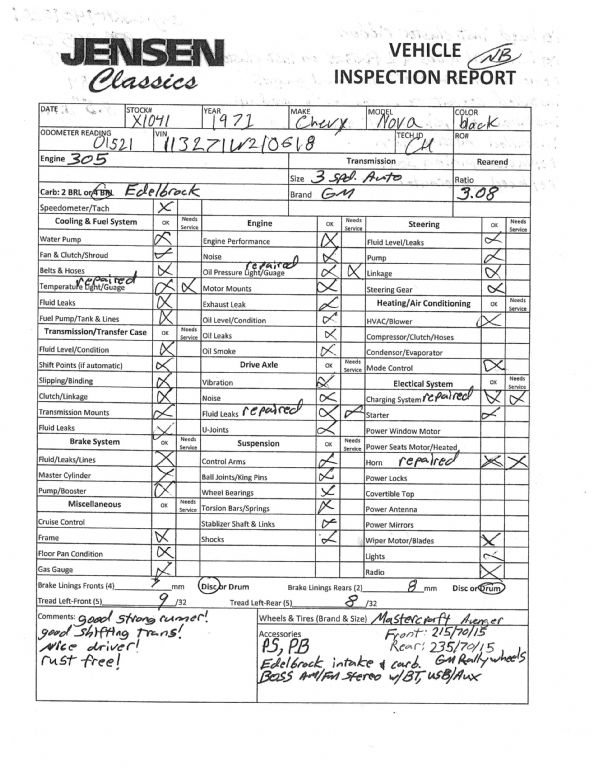 JENSEN
Classics
VEHICLE
INSPECTION REPORT
NB
DATE
STOCK# X1041
YEAR 1971
MAKE Chevy
MODEL Nova
COLOR black
ODOMETER READING 01521
VIN 113271W210618
TECH ID CH
RO#
Engine 305
Transmission
Rearend
Size 3 spd. Auto
Ratio
Carb: 2 BRL or 4 BRL Edelbrock
Brand GM
3.08
Speedometer/Tach
Cooling & Fuel System OK Needs Service
Engine OK Needs Service
Steering OK Needs Service
Water Pump
Engine Performance
Fluid Level/Leaks
Fan & Clutch/Shroud
Noise
Pump
Belts & Hoses
Oil Pressure Light/Guage repaired
Linkage
Temperature Light/Guage repaired
Motor Mounts
Steering Gear
Fluid Leaks
Exhaust Leak
Heating/Air Conditioning OK Needs Service
Fuel Pump/Tank & Lines
Oil Level/Condition
HVAC/Blower
Transmission/Transfer Case OK Needs Service
Oil Leaks
Compressor/Clutch/Hoses
Fluid Level/Condition
Oil Smoke
Condensor/Evaporator
Shift Points (if automatic)
Drive Axle OK Needs Service
Mode Control
Slipping/Binding
Vibration
Electical System OK Needs Service
Clutch/Linkage
Noise
Charging System repaired
Transmission Mounts
Fluid Leaks repaired
Starter
Fluid Leaks
U-Joints
Power Window Motor
Brake System OK Needs Service
Suspension OK Needs Service
Power Seats Motor/Heated
Fluid/Leaks/Lines
Control Arms
Horn repaired
Master Cylinder
Ball Joints/King Pins
Power Locks
Pump/Booster
Wheel Bearings
Covertible Top
Miscellaneous OK Needs Service
Torsion Bars/Springs
Power Antenna
Cruise Control
Stablizer Shaft & Links
Power Mirrors
Frame
Shocks
Wiper Motor/Blades
Floor Pan Condition
Lights
Gas Gauge
Radio
Brake Linings Fronts (4) mm Disc or Drum
Brake Linings Rears (2) 8 mm Disc or Drum
Tread Left-Front (5) 9 /32
Tread Left-Rear (5) 8 /32
Comments: good strong runner!
good shifting trans!
Nice driver!
rust free!
Wheels & Tires (Brand & Size) Mastercraft Avenger
Accessories
Front: 215/70/15
PS, PB
Rear: 235/70/15
Edelbrock intake & carb. GM Rally wheels
BOSS AM/FM Stereo w/BT, USB/Aux